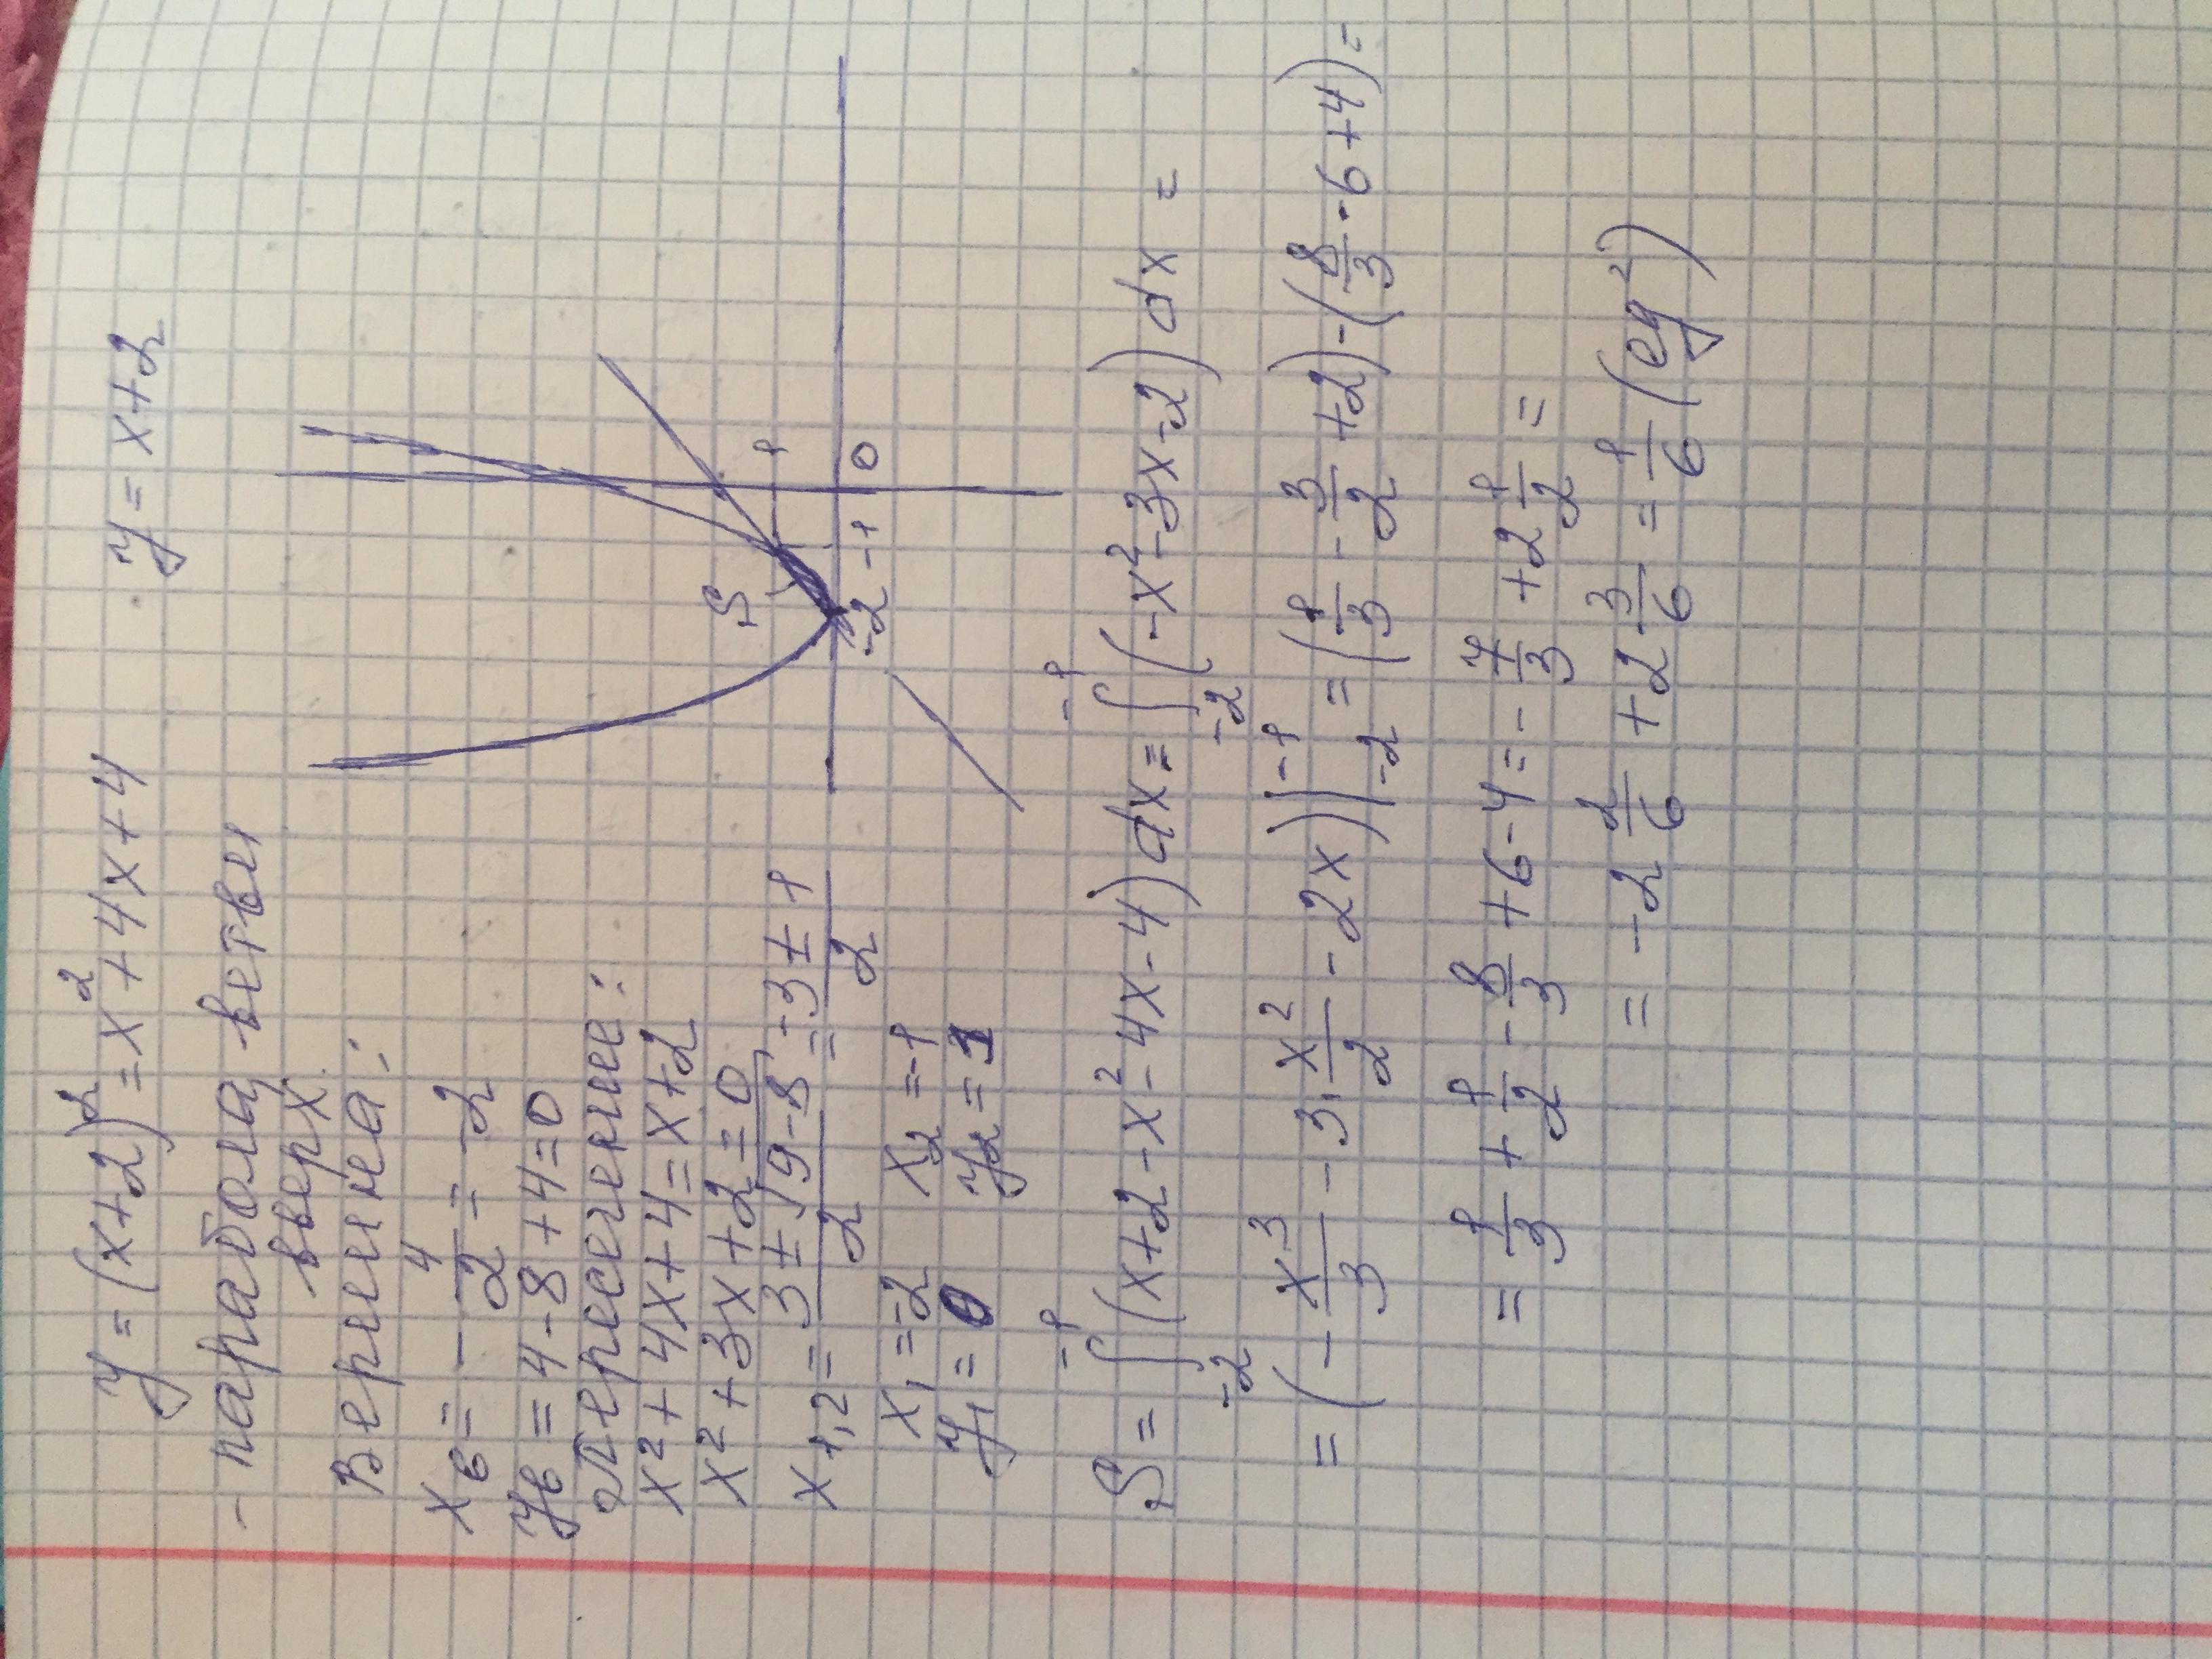 y = (x+2)² = x² + 4x + 4    y = x+2
- парабола ветви
вверх.
Вершина:
xв = - 4/2 = - 2
yв = 4 - 8 + 4 = 0
Пересечение:
x² + 4x + 4 = x + 2
x² + 3x + 2 = 0
x1,2 = 3 ± √9-8 / 2 = -3 ± 1 / 2
x1 = -2    x2 = -1
y1 = 0    y2 = 1
S
1
-2 -1 0
S = ∫₋₂⁻¹ (x+2 - x² - 4x - 4) dx = ∫₋₂⁻¹ (-x² - 3x - 2) dx =
= (- x³/3 - 3·x²/2 - 2x) |₋₂⁻¹ = (1/3 - 3/2 + 2) - (8/3 - 6 + 4) =
= 1/3 + 1/2 - 8/3 + 6 - 4 = - 7/3 + 2 1/2 =
= - 2 2/6 + 2 3/6 = 1/6 (ед²)